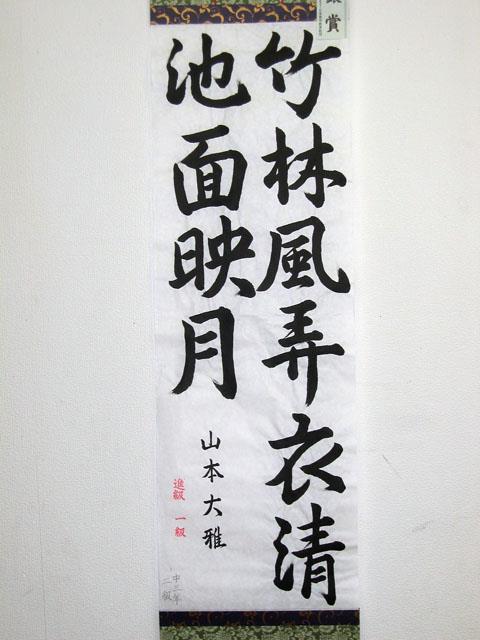 竹林風弄衣清
池面映月
山本大雅
進級 一級
中三年
二級
賞